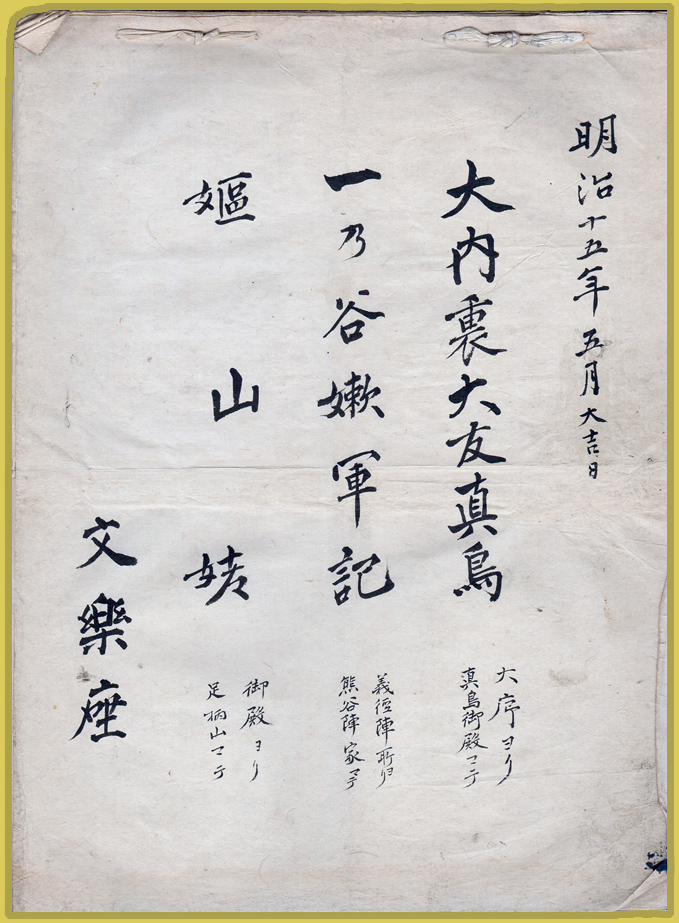 明治十五年五月大吉日
大内裏大友真鳥
大序ヨリ
真鳥御殿マテ
一乃谷嫩軍記
義経陣所ヨリ
熊谷陣家マテ
嫗山姥
御殿ヨリ
足柄山マテ
文樂座